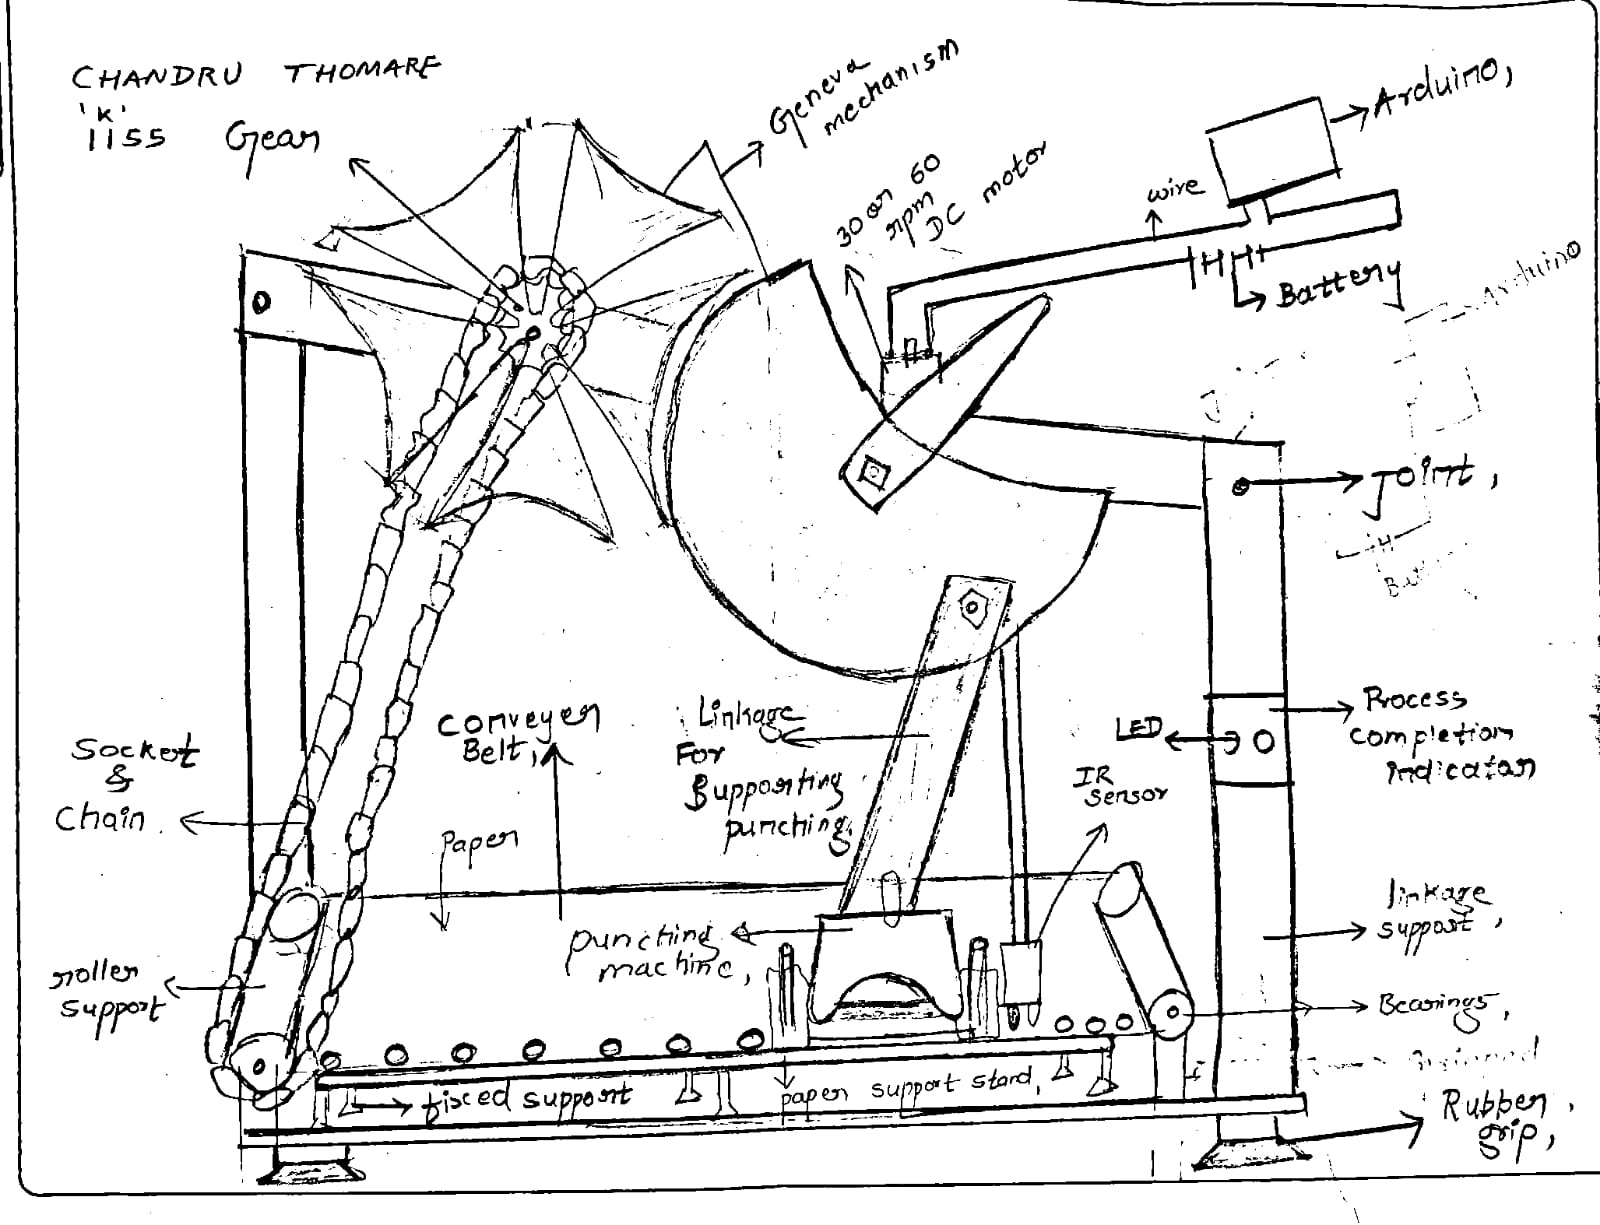 CHANDRU THOMARE
'K'
1155
Gear
Geneva
mechanism
30 or 60
rpm
DC motor
wire
Arduino,
Battery
Arduino
Joint,
Process
completion
indicator
LED
IR
Sensor
Linkage
For
Supporting
punching,
conveyer
Belt,
Socket
&
Chain
Paper
punching
machine,
linkage
support,
roller
support
Bearings,
fixed support
paper support stand,
Rubber,
grip,